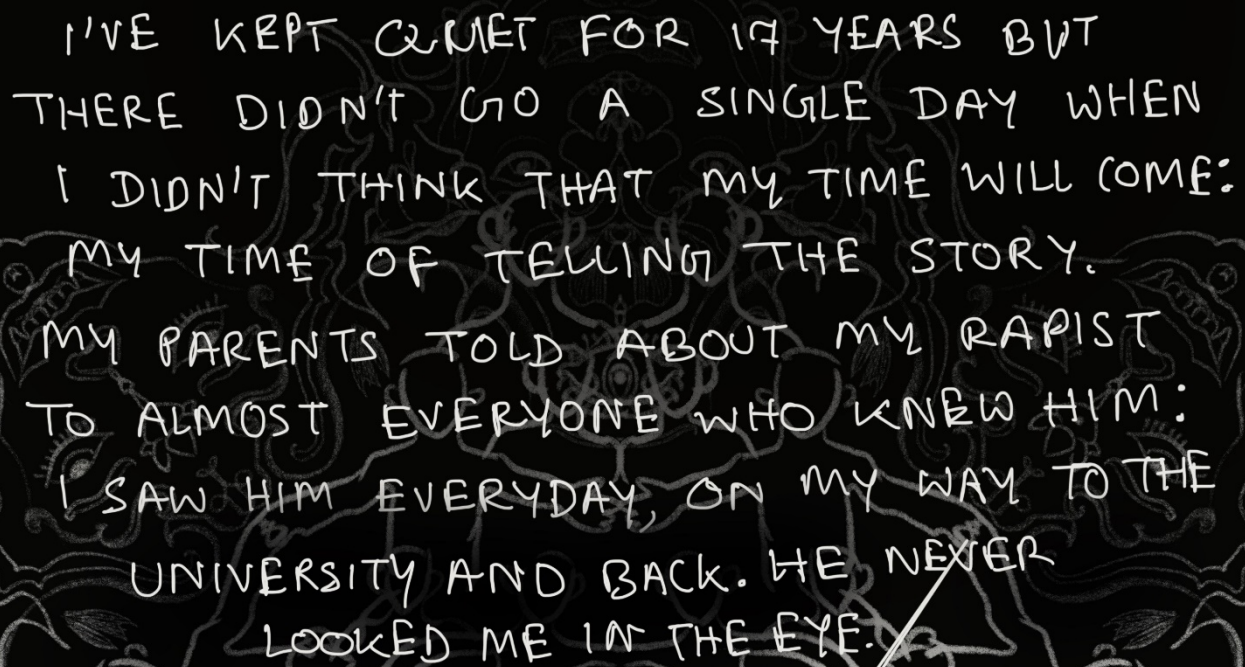 I'VE KEPT QUIET FOR 17 YEARS BUT
THERE DIDN'T GO A SINGLE DAY WHEN
I DIDN'T THINK THAT MY TIME WILL COME:
MY TIME OF TELLING THE STORY.
MY PARENTS TOLD ABOUT MY RAPIST
TO ALMOST EVERYONE WHO KNEW HIM:
I SAW HIM EVERYDAY, ON MY WAY TO THE
UNIVERSITY AND BACK. HE NEVER
LOOKED ME IN THE EYE.